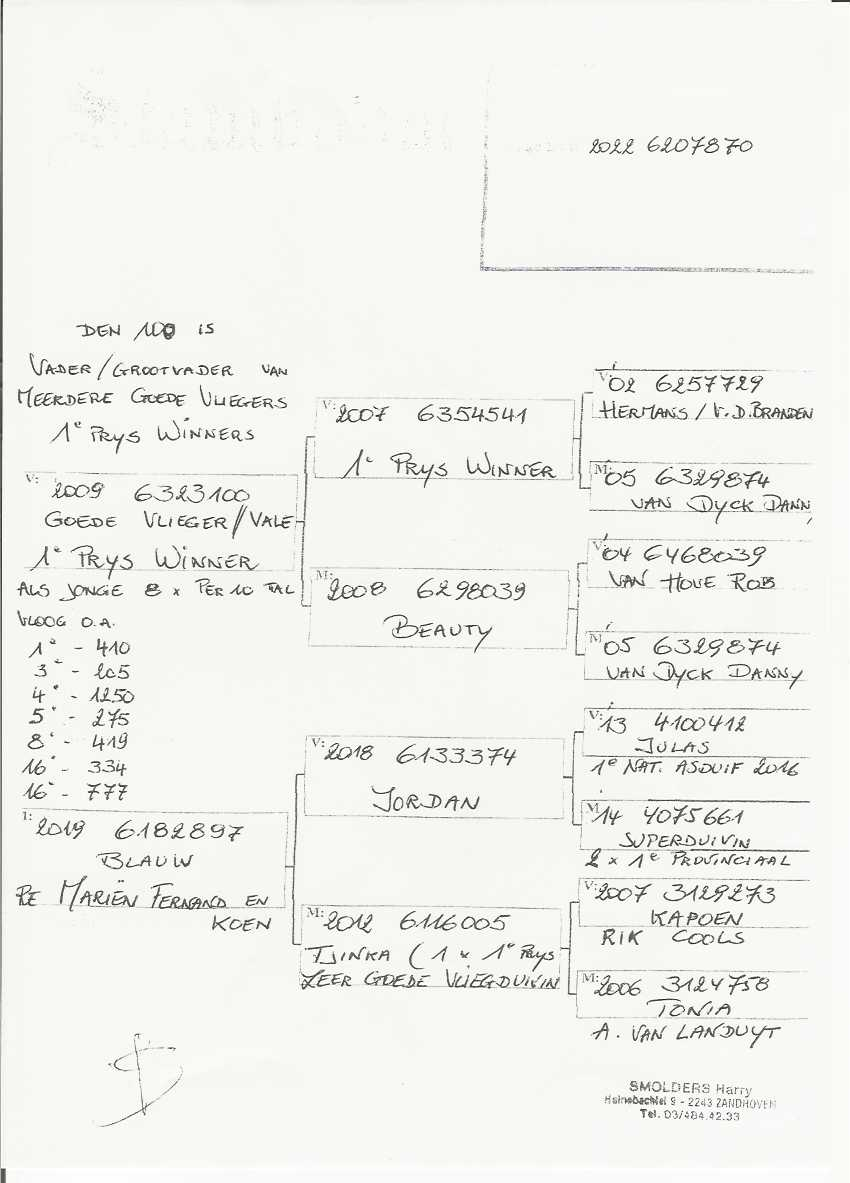 2022 6207870
DEN 100 IS
VADER/GROOTVADER VAN
MEERDERE GOEDE VLIEGERS
1e PRYS WINNERS
V: 2009 6323100
GOEDE VLIEGER/VALE
1e PRYS WINNER
ALS JONGE 8 x PER 10 TAL
VLOOG O.A.
1e - 410
3e - 205
4e - 1250
5e - 275
8e - 419
16e - 334
16e - 777
1: 2019 6182897
BLAUW
RE MARIËN FERNAND EN
KOEN
V: 2007 6354541
1e PRYS WINNER
M: 2008 6298039
BEAUTY
V: 2018 6133374
JORDAN
M: 2012 6116005
TJINKA ( 1 x 1e PRYS
ZEER GOEDE VLIEGDUIVIN
V: '02 6257729
HERMANS / V.D. BRANDEN
M: '05 6329874
VAN DYCK DANN
V: '04 6468039
VAN HOVE ROB
M '05 6329874
VAN DYCK DANNY
V: '13 4100412
JULAS
1e NAT. ASDUIF 2016
M '14 4075661
SUPERDUIVIN
2 x 1e PROVINCIAAL
V: 2007 3129273
KAPOEN
RIK COOLS
M: 2006 3124758
TONIA
A. VAN LANDUYT
SMOLDERS Harry
9 - 2243 ZANDHOVEN
Tel. 03/484.42.33